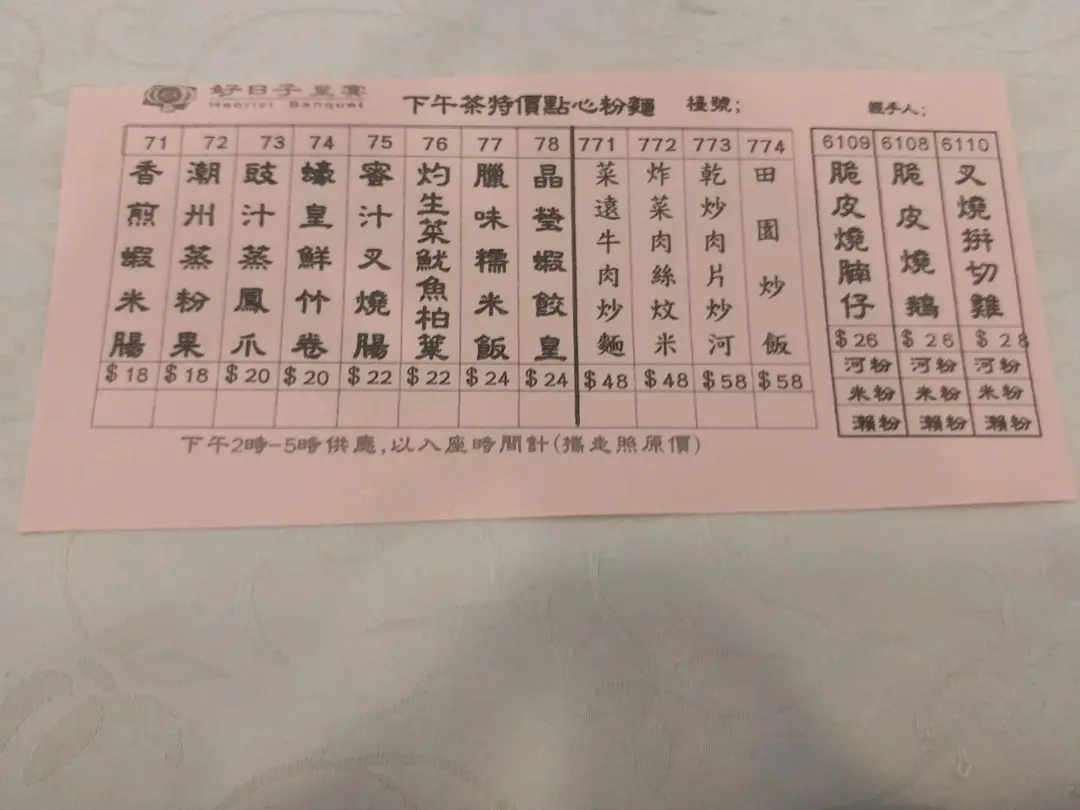 好日子皇宴
Haorizi Banquet
下午茶特價點心粉麵
檯號;
經手人;
71 72 73 74 75 76 77 78 771 772 773 774
香煎蝦米腸
潮州蒸粉果
豉汁蒸鳳爪
蠔皇鮮竹卷
蜜汁叉燒腸
灼生菜魷魚柏葉
臘味糯米飯
晶瑩蝦餃皇
菜遠牛肉炒麵
炸菜肉絲炆米
乾炒肉片炒河
田園炒飯
$18 $18 $20 $20 $22 $22 $24 $24 $48 $48 $58 $58
6109 6108 6110
脆皮燒腩仔
脆皮燒鵝
叉燒拼切雞
$26 $26 $28
河粉 河粉 河粉
米粉 米粉 米粉
瀨粉 瀨粉 瀨粉
下午2時-5時供應,以入座時間計(攜走照原價)